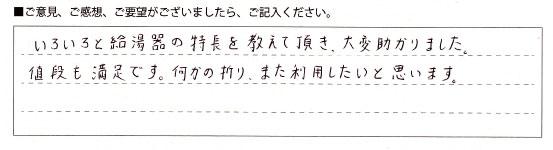 ■ご意見、ご感想、ご要望がございましたら、ご記入ください。
いろいろと給湯器の特長を教えて頂き、大変助かりました。
値段も満足です。何かの折り、また利用したいと思います。